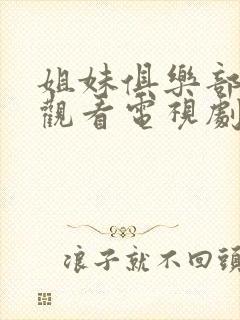 姐妹俱樂部
觀看電視劇
浪子就不回頭